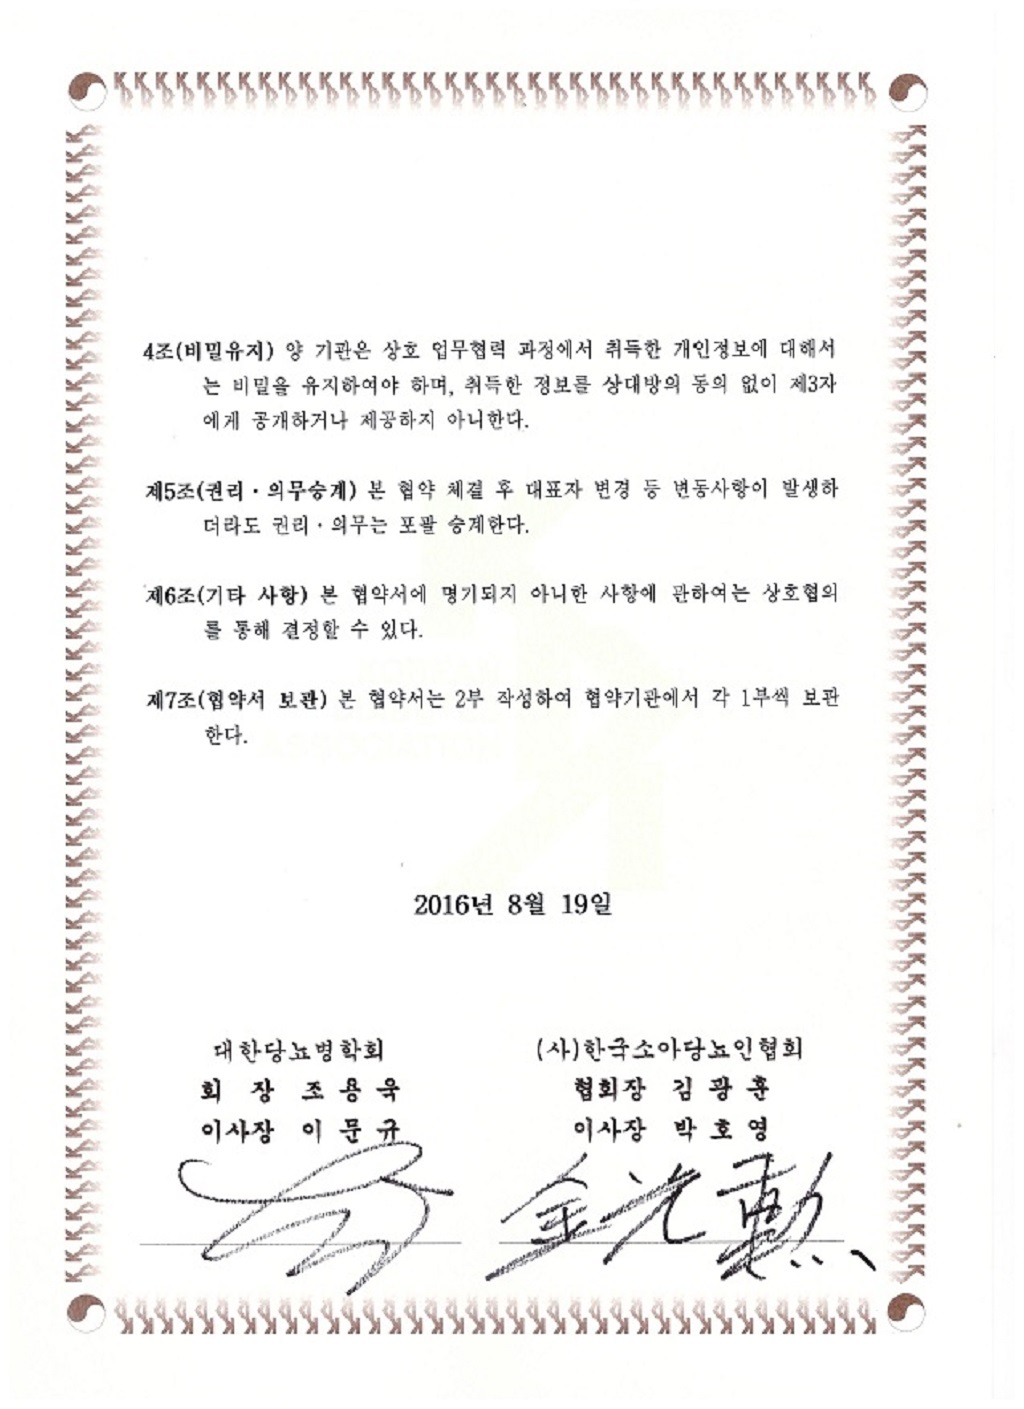 4조(비밀유지) 양 기관은 상호 업무협력 과정에서 취득한 개인정보에 대해서
는 비밀을 유지하여야 하며, 취득한 정보를 상대방의 동의 없이 제3자
에게 공개하거나 제공하지 아니한다.
제5조(권리·의무승계) 본 협약 체결 후 대표자 변경 등 변동사항이 발생하
더라도 권리·의무는 포괄 승계한다.
제6조(기타 사항) 본 협약서에 명기되지 아니한 사항에 관하여는 상호협의
를 통해 결정할 수 있다.
제7조(협약서 보관) 본 협약서는 2부 작성하여 협약기관에서 각 1부씩 보관
한다.
2016년 8월 19일
대한당뇨병학회
회 장 조 용 욱
이사장 이 문 규
(사)한국소아당뇨인협회
협회장 김 광 훈
이사장 박 호 영
金光勳